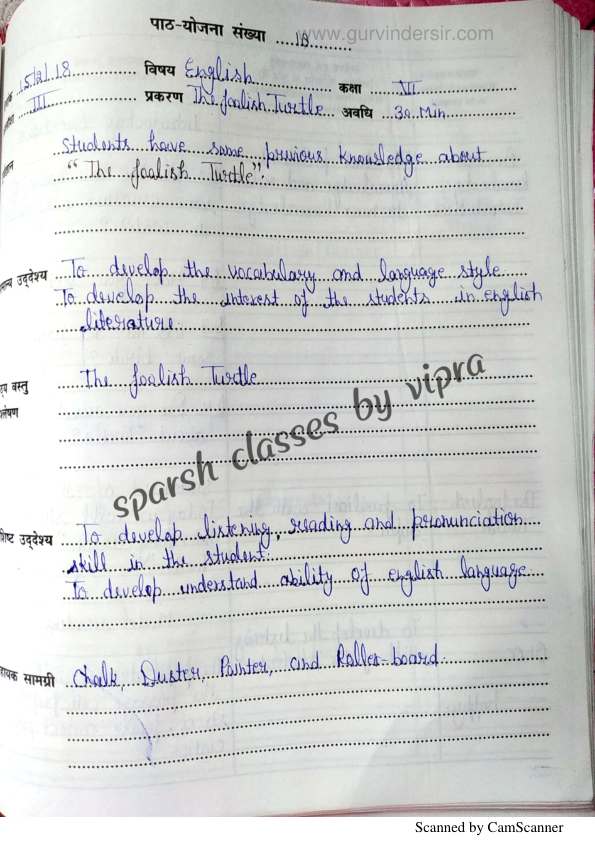 www.gurvindersir.com
पाठ-योजना संख्या ....1B..........
15/2/18 विषय English कक्षा VI
III प्रकरण The foolish Turtle अवधि 30 Min
Students have some previous knowledge about
"The foolish Turtle".
उद्देश्य To develop the vocabulary and language style
To develop the interest of the students in english
literature.
वस्तु The foolish Turtle
sparsh classes by vipra
उद्देश्य To develop listening, reading and pronunciation
skill in the student.
To develop understand ability of english language.
सामग्री Chalk, Duster, Pointer, and Roller-board.
Scanned by CamScanner